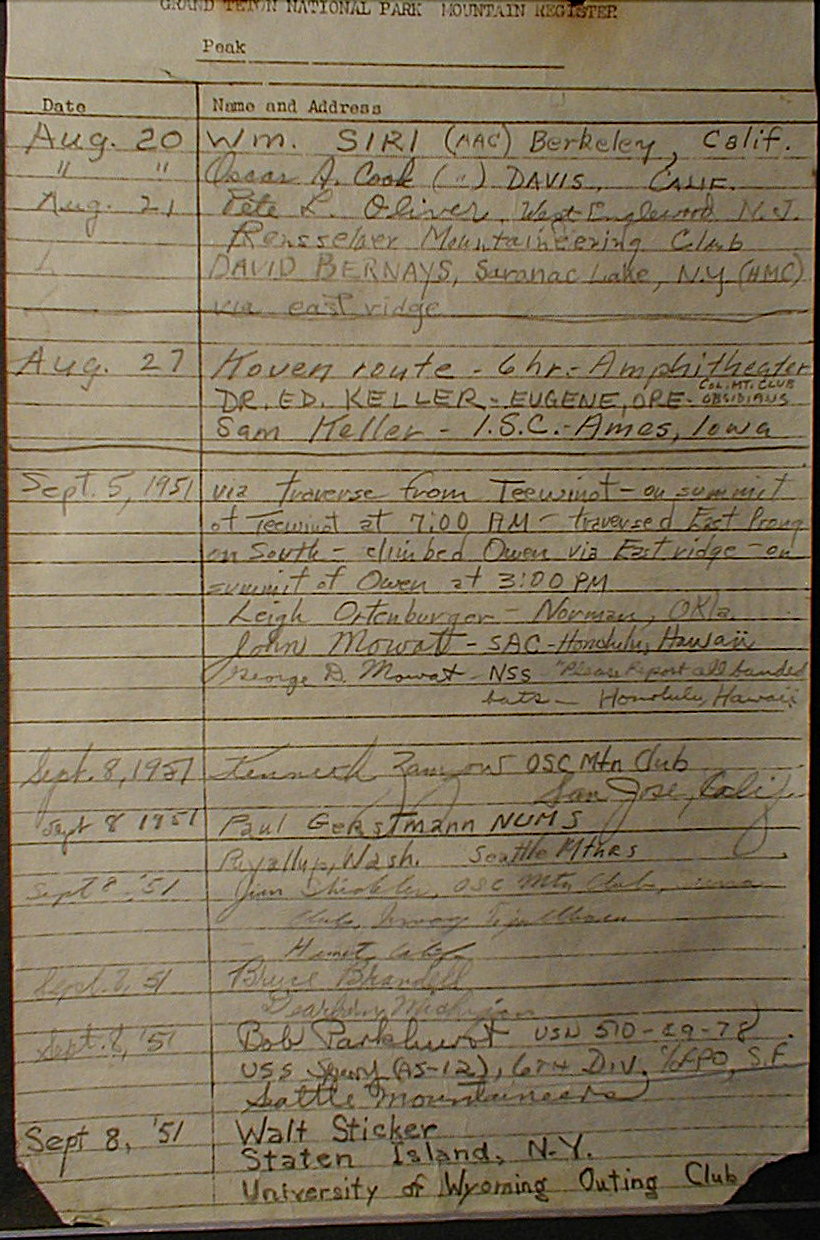 GRAND TETON NATIONAL PARK MOUNTAIN REGISTER
Peak
Date Name and Address
Aug. 20 Wm. SIRI (AAC) Berkeley, Calif.
" " Oscar A. Cook (") DAVIS, CALIF.
Aug. 21 Pete L. Oliver, West Englewood N.J.
Rensselaer Mountaineering Club
DAVID BERNAYS, Saranac Lake, N.Y (HMC)
via east ridge
Aug. 27 Koven route - 6 hr. - Amphitheater
COL. MT. CLUB
DR. ED. KELLER - EUGENE, ORE - OBSIDIANS
Sam Keller - I.S.C. - Ames, Iowa
Sept. 5, 1951 via traverse from Teewinot - on summit
of Teewinot at 7:00 AM - traversed East Prong
on South - climbed Owen via East ridge - on
summit of Owen at 3:00 PM
Leigh Ortenburger - Norman, Okla.
John Mowat - SAC - Honolulu, Hawaii
George D. Mowat - NSS - "Please Report all banded
bats - Honolulu, Hawaii
Sept. 8, 1951 Kenneth OSC Mtn Club
San Jose, Calif
Sept 8 1951 Paul Gerstmann NUMS
Puyallup, Wash. Seattle Mtnrs
Sept 8 '51 Jim OSC Mtn Club,
Club,
Hemet, Calif
Sept. 8, '51 Bruce Brandell
Dearborn, Michigan
Sept. 8, '51 Bob Parkhurst USN 510-29-78
USS Sperry (AS-12), Div. % FPO, S.F.
Seattle Mountaineers
Sept 8, '51 Walt Sticker
Staten Island, N.Y.
University of Wyoming Outing Club